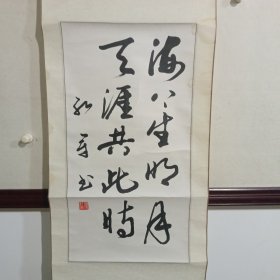 海上生明月
天涯共此时
书